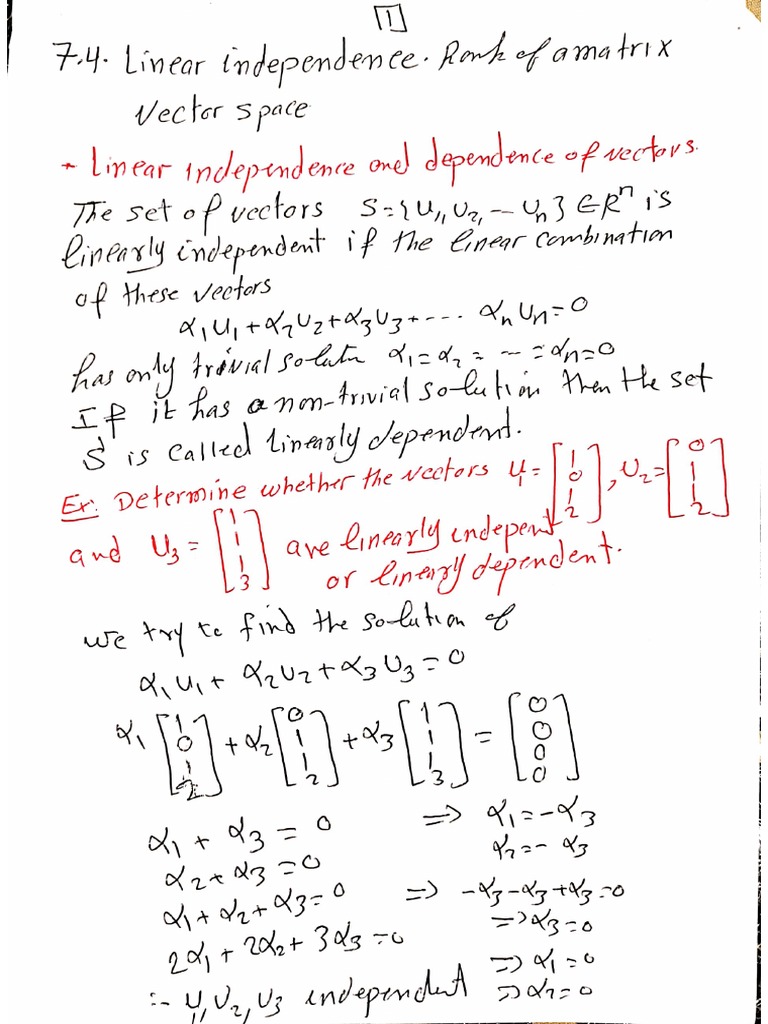 1
7.4. Linear independence. Rank of a matrix
Vector space
- Linear independence and dependence of vectors.
The set of vectors S={u₁, u₂, -- uₙ} ∈ Rⁿ is
linearly independent if the linear combination
of these vectors
α₁u₁+α₂u₂+α₃u₃+---- αₙuₙ=0
has only trivial solutn α₁=α₂= -- =αₙ=0
If it has a non-trivial solution then the set
S is called linearly dependent.
Ex: Determine whether the vectors u₁=[1 0 1 2], u₂=[0 1 1 2]
and u₃=[1 1 1 3] are linearly independent
or linearly dependent.
we try to find the solution of
α₁u₁+α₂u₂+α₃u₃=0
α₁[1 0 1 2]+α₂[0 1 1 2]+α₃[1 1 1 3]=[0 0 0 0]
α₁+α₃=0 ⇒ α₁=-α₃
α₂+α₃=0 α₂=-α₃
α₁+α₂+α₃=0 ⇒ -α₃-α₃+α₃=0
⇒α₃=0
2α₁+2α₂+3α₃=0 ⇒ α₁=0
∴ u₁, u₂, u₃ independent ⇒ α₂=0